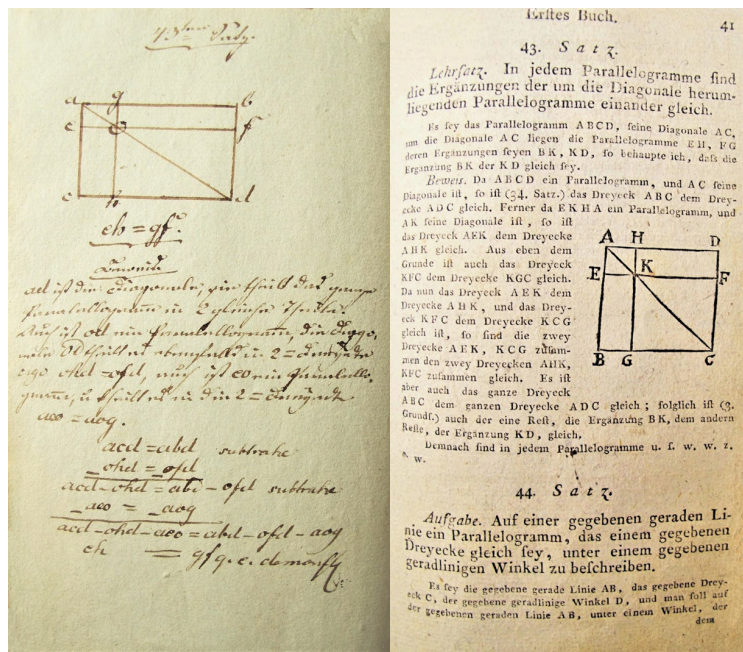 43ter Satz.
a g b
e o f
c h d
eh = gf.
Beweis
ad ist die Diagonale, sie theilt das ganze
Parallelogramm in 2 gleiche Theile.
Auch ist od ein Parallelogramm, die Diago,
nale od theilt es ebenfalls in 2 =
ergo ohd = ofd, auch ist eo ein Parallello,
gramm, u. theilt es in 2 =
aeo = aog.
acd = abd subtrahe
– ohd = ofd
acd – ohd = abd – ofd subtrahe
– aeo = – aog
acd – ohd – aeo = abd – ofd – aog
eh = gf q. e. demonst
Erſtes Buch. 41
43. Satz.
Lehrſatz. In jedem Parallelogramme ſind
die Ergänzungen der um die Diagonale herum-
liegenden Parallelogramme einander gleich.
Es ſey das Parallelogramm ABCD, ſeine Diagonale AC,
um die Diagonale AC liegen die Parallelogramme EH, FG
deren Ergänzungen ſeyen BK, KD, ſo behaupte ich, daſs die
Ergänzung BK der KD gleich ſey.
Beweis. Da ABCD ein Parallelogramm, und AC ſeine
Diagonale iſt, ſo iſt (34. Satz.) das Dreyeck ABC dem Drey-
ecke ADC gleich. Ferner da EKHA ein Parallelogramm, und
AK ſeine Diagonale iſt, ſo iſt
das Dreyeck AEK dem Dreyecke
AHK gleich. Aus eben dem
Grunde iſt auch das Dreyeck
KFC dem Dreyecke KGC gleich.
Da nun das Dreyeck AEK dem
Dreyecke AHK, und das Drey-
eck KFC dem Dreyecke KCG
gleich iſt, ſo ſind die zwey
Dreyecke AEK, KCG zuſam-
men den zwey Dreyecken AHK,
KFC zuſammen gleich. Es iſt
aber auch das ganze Dreyeck
A H D
E K F
B G C
ABC dem ganzen Dreyecke ADC gleich; folglich iſt (3.
Grundſ.) auch der eine Reſt, die Ergänzung BK, dem andern
Reſte, der Ergänzung KD, gleich.
Demnach ſind in jedem Parallelogramme u. ſ. w. w. z.
e. w.
44. Satz.
Aufgabe. Auf einer gegebenen geraden Li-
nie ein Parallelogramm, das einem gegebenen
Dreyecke gleich ſey, unter einem gegebenen
geradlinigen Winkel zu beſchreiben.
Es ſey die gegebene gerade Linie AB, das gegebene Drey-
eck C, der gegebene geradlinige Winkel D, und man ſoll auf
der gegebenen geraden Linie AB, unter einem Winkel, der
dem